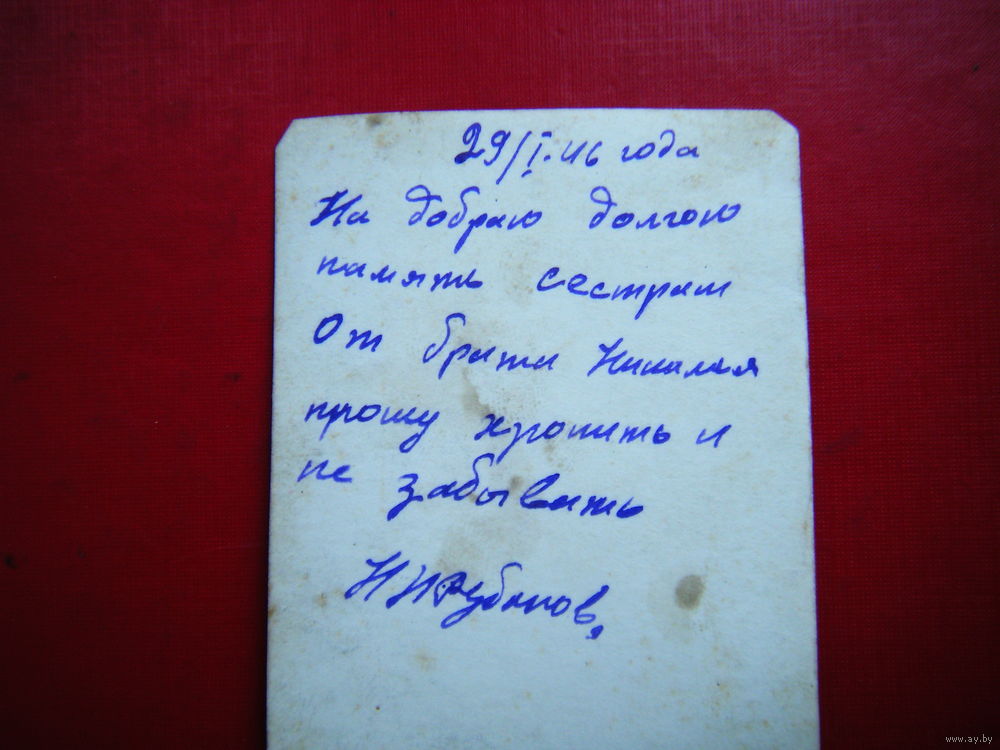 29/I.46 года
На добраю долгою
память сестрам
От брата Николая
прошу хронить и
не забывать
www.ay.by